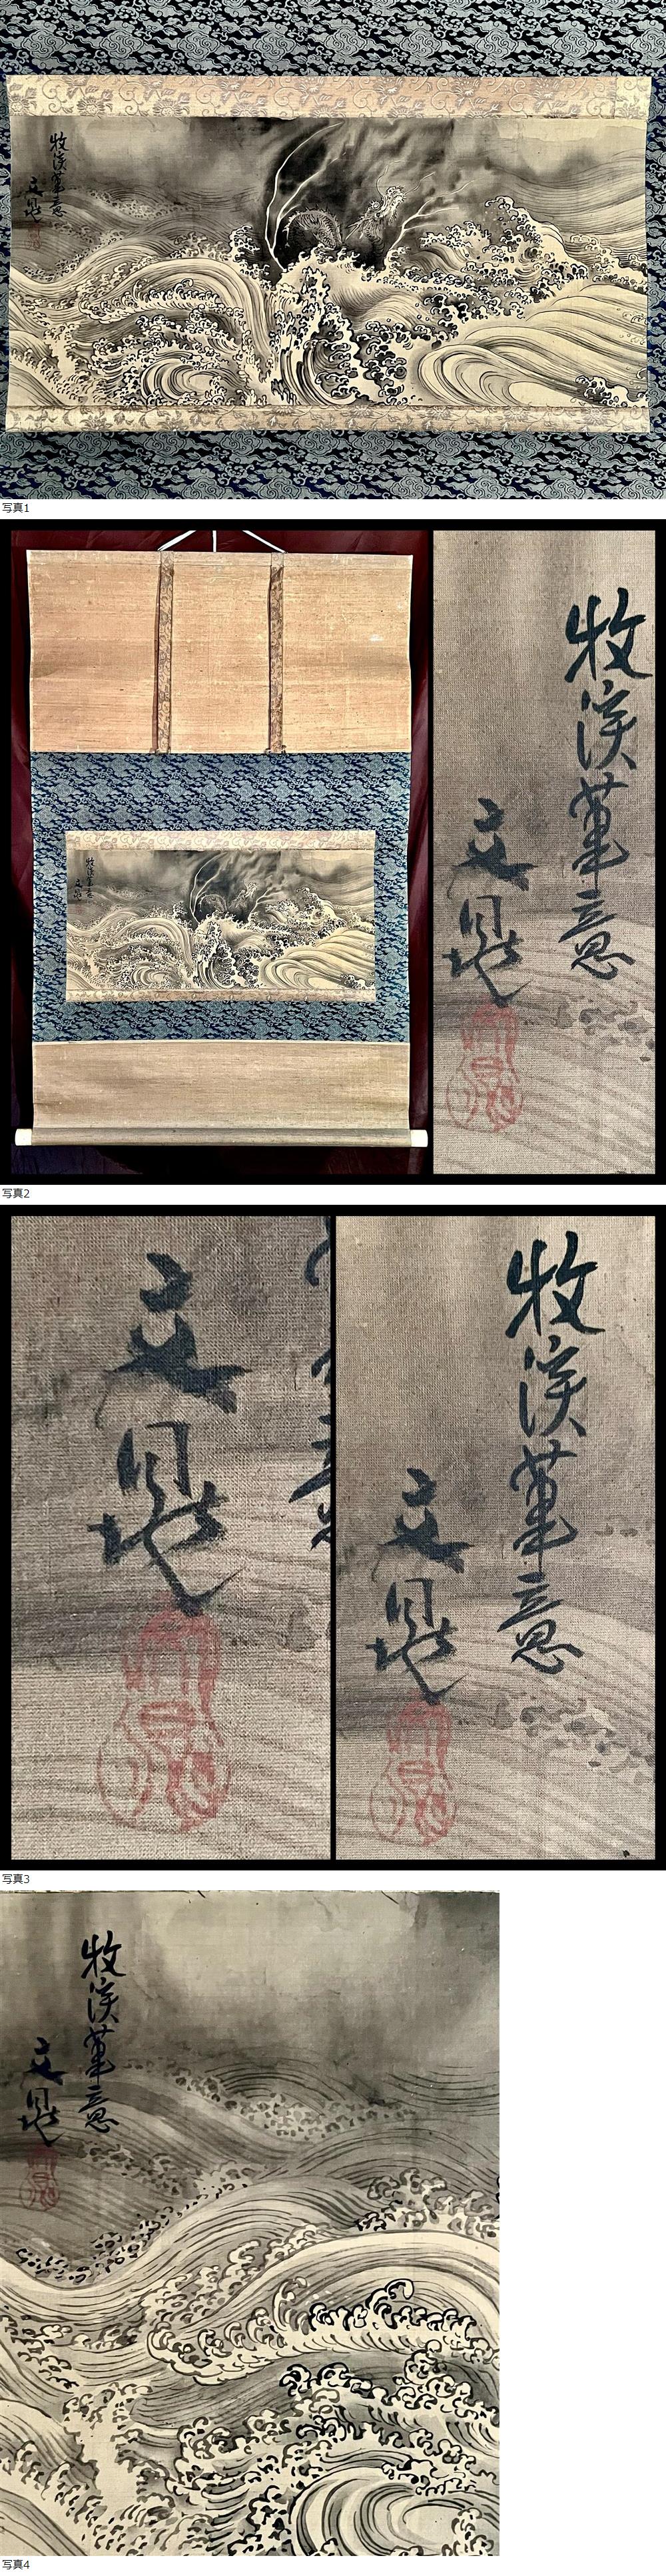 牧渓筆意
文晁
写真1
牧渓筆意
文晁
牧渓筆意
文晁
写真2
文晁
牧渓筆意
文晁
写真3
牧渓筆意
文晁
写真4